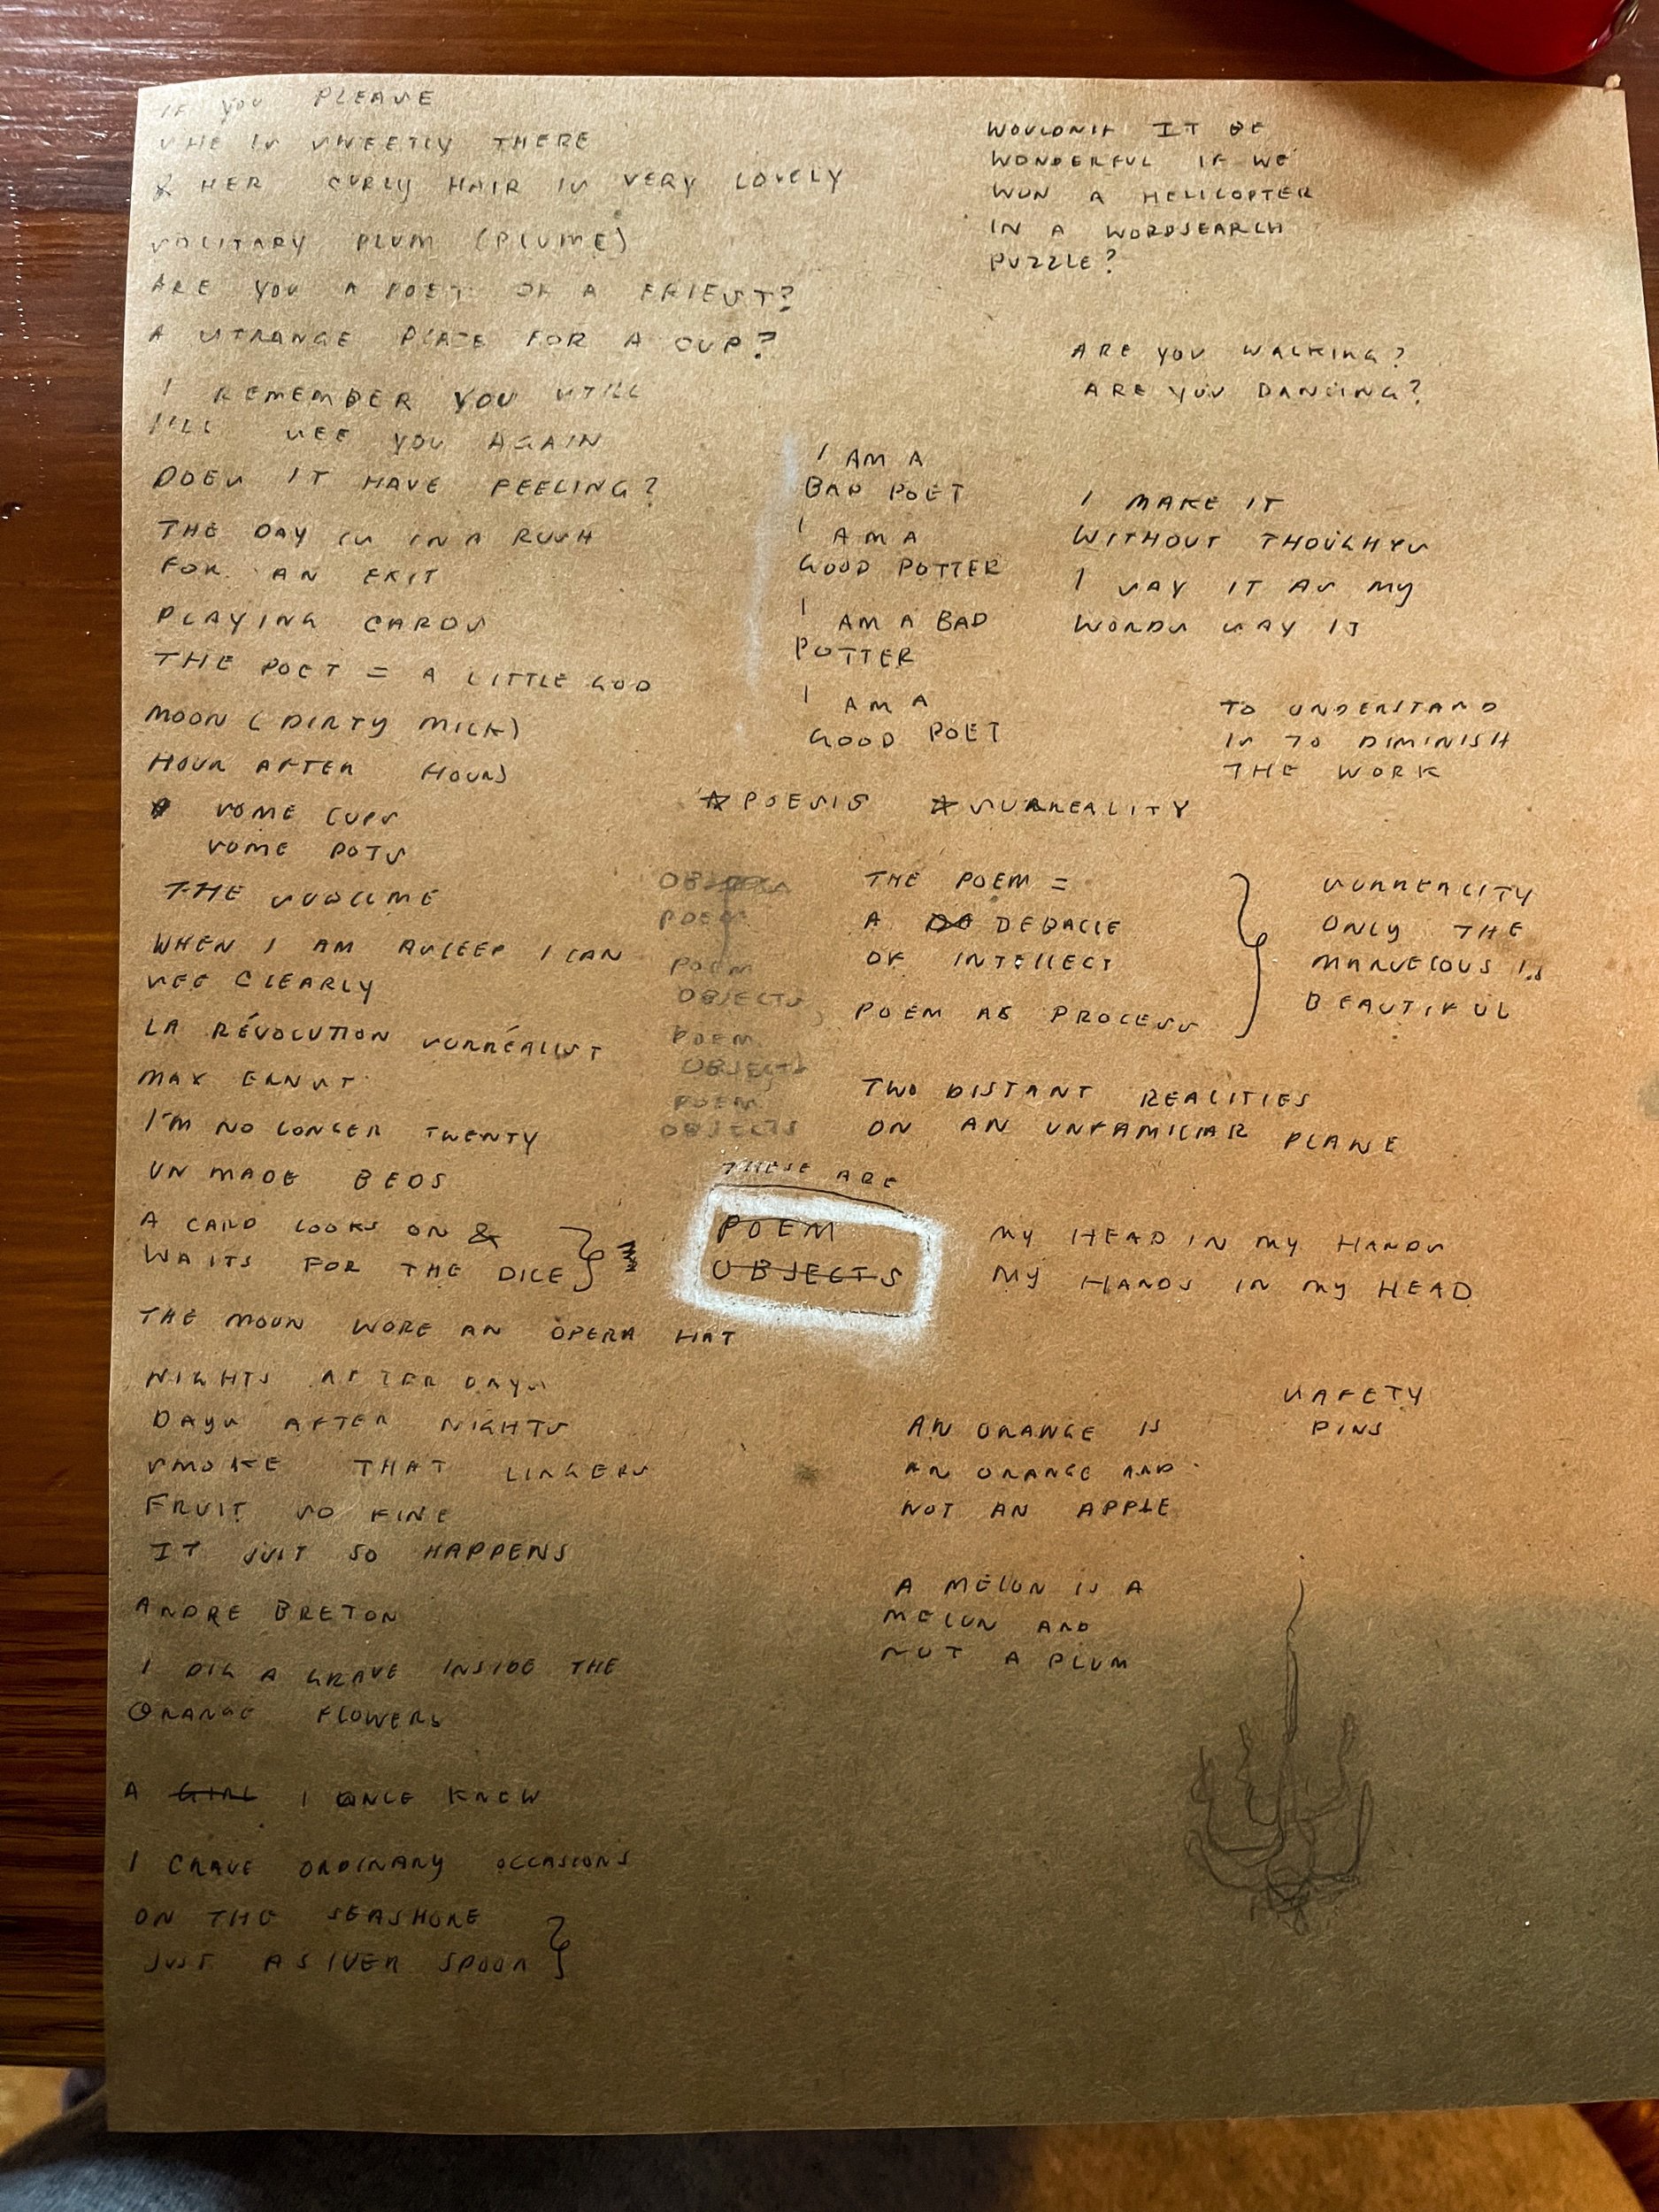 IF YOU PLEASE
SHE IS SWEETLY THERE
& HER CURLY HAIR IS VERY LOVELY
SOLITARY PLUM (PLUME)
ARE YOU A POET OR A PRIEST?
A STRANGE PLACE FOR A CUP?
I REMEMBER YOU STILL
I'LL SEE YOU AGAIN
DOES IT HAVE FEELING?
THE DAY IS IN A RUSH
FOR AN EXIT
PLAYING CARDS
THE POET = A LITTLE GOD
MOON (DIRTY MILK)
HOUR AFTER HOURS
SOME CUPS
SOME POTS
THE
WHEN I AM ASLEEP I CAN
SEE CLEARLY
LA RÉVOLUTION SURRÉALIST
MAX ERNST
I'M NO LONGER TWENTY
UN MADE BEDS
A CARD LOOKS ON &
WAITS FOR THE DICE
THE MOON WORE AN OPERA HAT
NIGHTS AFTER DAYS
DAYS AFTER NIGHTS
SMOKE THAT LINGERS
FRUIT SO FINE
IT JUST SO HAPPENS
ANDRE BRETON
I DIG A GRAVE INSIDE THE
ORANGE FLOWERS
A GIRL I ONCE KNEW
I CRAVE ORDINARY OCCASIONS
ON THE SEASHORE
JUST A SILVER SPOON
WOULDN'T IT BE
WONDERFUL IF WE
WON A HELICOPTER
IN A WORDSEARCH
PUZZLE?
ARE YOU WALKING?
ARE YOU DANCING?
I AM A
BAD POET
I AM A
GOOD POTTER
I AM A BAD
POTTER
I AM A
GOOD POET
I MAKE IT
WITHOUT THOUGHTS
I SAY IT AS MY
WORDS SAY IT
TO UNDERSTAND
IS TO DIMINISH
THE WORK
☆ POESIS ☆ SURREALITY
POEM
POEM
OBJECTS
POEM
OBJECTS
POEM
OBJECTS
THE POEM =
A DEBACLE
OF INTELLECT
POEM AS PROCESS
SURREALITY
ONLY THE
MARVELOUS IS
BEAUTIFUL
TWO DISTANT REALITIES
ON AN UNFAMILIAR PLANE
THESE ARE
POEM
OBJECTS
MY HEAD IN MY HANDS
MY HANDS IN MY HEAD
SAFETY
PINS
AN ORANGE IS
AN ORANGE AND
NOT AN APPLE
A MELON IS A
MELON AND
NOT A PLUM